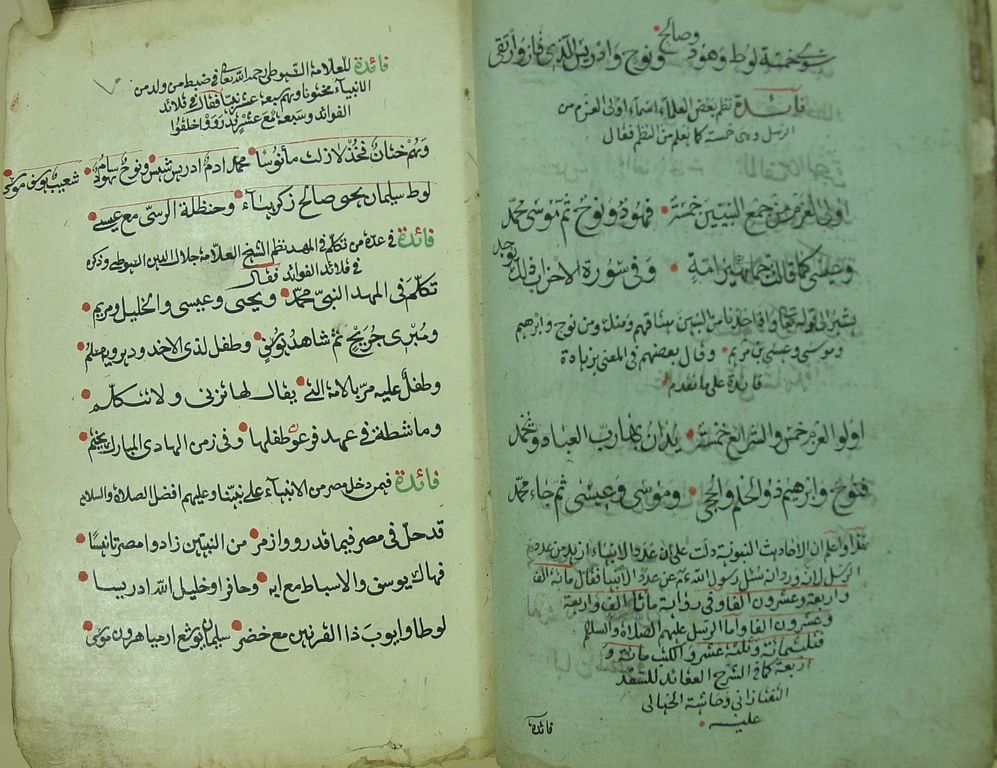 سوى خمسة لوط وهود وصالح ونوح وادريس الذي فاز وارتقى
فائدة نظم بعض العلماء اسماء اولى العزم من
الرسل وهى خمسة كما يعلم من النظم فقال
اولى العزم من جمع النبيين خمسة فهود ونوح ثم موسى محمد
وعيسى كما قالت جماهير امة وفى سورة الاحزاب ذلك يوجد
يشير الى قوله تعالى واذ اخذنا من النبيين ميثاقهم ومنك ومن نوح وابرهيم
وموسى وعيسى بن مريم وقال بعضهم فى المعنى بزيادة
فائدة على ما تقدم
اولو العزم خمس والشرائع خمسة يدان بها رب العباد ويحمد
فنوح وابرهيم ذو الحلم والحجى وموسى وعيسى ثم جاء محمد
هذا واعلم ان الاحاديث النبوية دلت على ان عدد الانبياء ازيد من عدد
الرسل لانه ورد انه سئل رسول الله عن عدد الانبيا فقال مائة الف
واربعة وعشرون الفا وفى رواية مائتا الف واربعة
وعشرون الفا واما الرسل عليهم الصلاة والسلام
فثلثمائة وثلثة عشر والكتب مائة و
اربعة كما فى الشرح العقائد للسعد
التفتازانى وحاشية الخيالى
عليه
فائدة
فائدة للعلامة السيوطى رحمه الله تعالى فى ضبط من ولد من
الانبياء مختونا وهم سبعة عشر نبيا فقال فى قلائد
الفوائد وسبعة مع عشر قد رووا خلقوا
وهم ختان فخذ لازلت مأنوسا محمد ادم ادريس شيس ونوح سام هود شعيب يوسف موسى
لوط سليمان يحيى صالح زكرياء وحنظلة الرسى مع عيسى
فائدة فى عدة من تكلم فى المهد نظم الشيخ العلامة جلال الدين السيوطى وذكره
فى قلائد الفوائد فقال
تكلم فى المهد النبى محمد ويحيى وعيسى والخليل ومريم
ومبرى جريج ثم شاهد يوسف وطفل لذى الاخدود يرويه مسلم
وطفل عليه مر بالامة التى يقال لها تزنى ولا تتكلم
وماشطة فى عهد فرعون طفلها وفى زمن الهادى المبارك يختم
فائدة فيمن دخل مصر من الانبياء على نبينا وعليهم افضل الصلاة والسلام
قد حل فى مصر فيما قد رووا زمر من النبيين زادوا مصر تانيسا
فهاك يوسف والاسباط مع ابه وحافرا وخليل الله ادريسا
لوطا وايوب ذا القرنين مع خضر سليمان يوشع ارميا هرون موسى